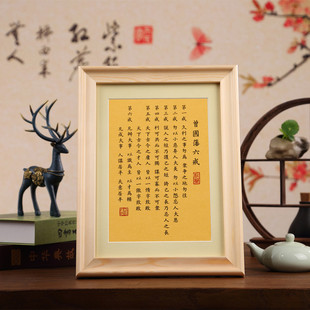 曾國藩六戒
第一戒 久利之事勿為 眾爭之地勿往
第二戒 勿以小惡棄人大美 勿以小怨忘人大恩
第三戒 說人之短乃護己之短 誇己之長乃忌人之長
第四戒 利可共而不可獨 謀可寡而不可眾
第五戒 天下古今之庸人 皆以一惰字致敗
天下古今之才人 皆以一傲字致敗
第六戒 凡辦大事 以識為主 以才為輔
凡成大事 人謀居半 天意居半